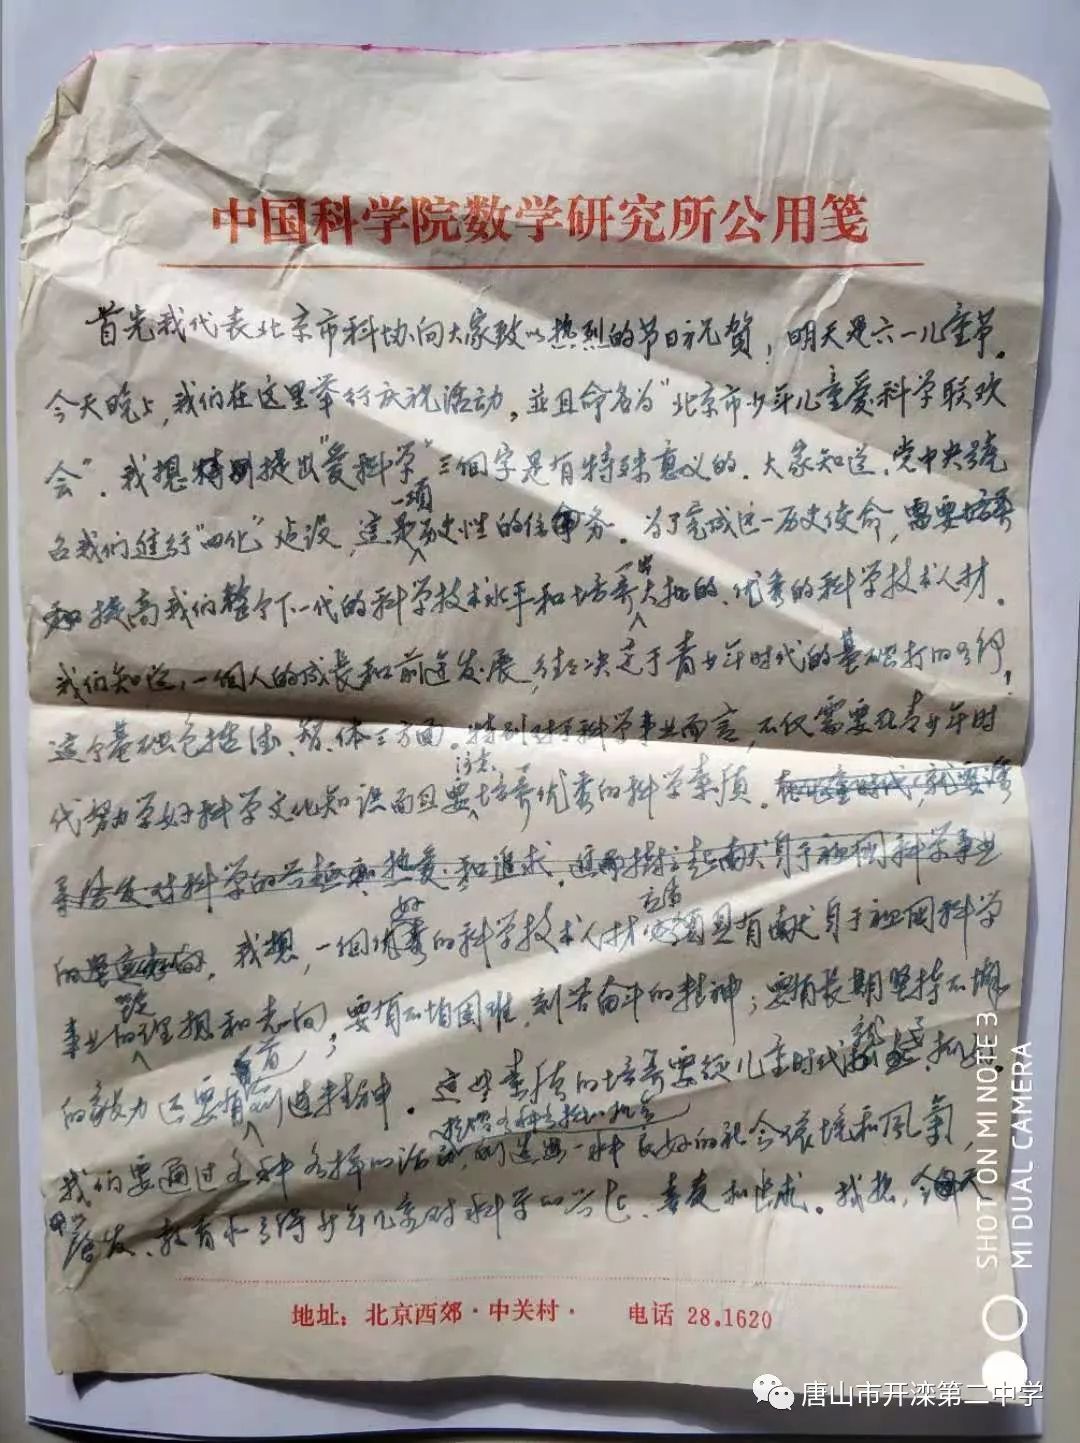 中国科学院数学研究所公用笺
首先我代表北京市科协向大家致以热烈的节日祝贺！明天是六一儿童节。
今天晚上，我们在这里举行庆祝活动，并且命名为“北京市少年儿童爱科学联欢
会”。我想特别提出“爱科学”三个字是有特殊意义的。大家知道，党中央号
召我们进行“四化”建设，这是一项历史性的任务。为了完成这一历史使命，需要培养
和提高我们整个下一代的科学技术水平和培养一大批的、优秀的科学技术人材。
我们知道，一个人的成长和前途发展，往往决定于青少年时代的基础打的好！
这个基础包括德、智、体三方面。特别对于科学事业而言，不仅需要在青少年时
代努力学好科学文化知识而且要注意培养优秀的科学素质。在儿童时代，就要
对科学的兴趣和热爱和追求，进而树立起献身于祖国科学事业
的。我想，一个优秀的科学技术人材必须具有献身于祖国科学
事业的理想和志向；要有不怕困难，刻苦奋斗的精神；要有长期坚持不懈
的毅力还要有创造精神。这些素质的培养要从儿童时代就抓起。
我们要通过各种各样的活动，创造出一种良好的社会环境和风气，
启发、教育和引得少年儿童对科学的兴趣、喜爱和。我想，今天
地址：北京西郊·中关村·　电话 28.1620
SHOT ON MI NOTE 3
MI DUAL CAMERA
唐山市开滦第二中学